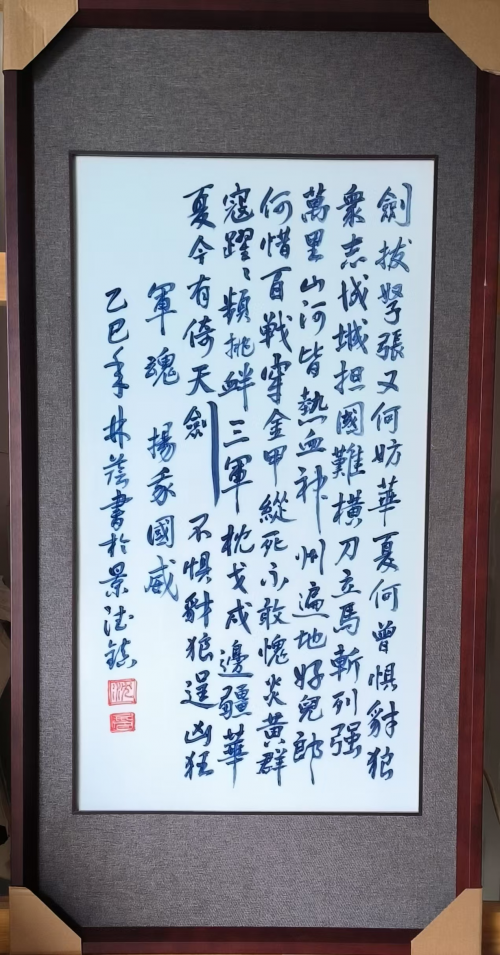 劍拔弩張又何妨華夏何曾懼豺狼
衆志成城担國難橫刀立馬斬列强
萬里山河皆熱血神州遍地好兒郎
何惜百戰穿金甲縱死不敢愧炎黃群
寇躍〻頻挑衅三軍枕戈戍邊疆華
夏今有倚天劍不懼豺狼逞凶狂
軍魂 揚我國威
乙巳年林蔭書於景德鎮